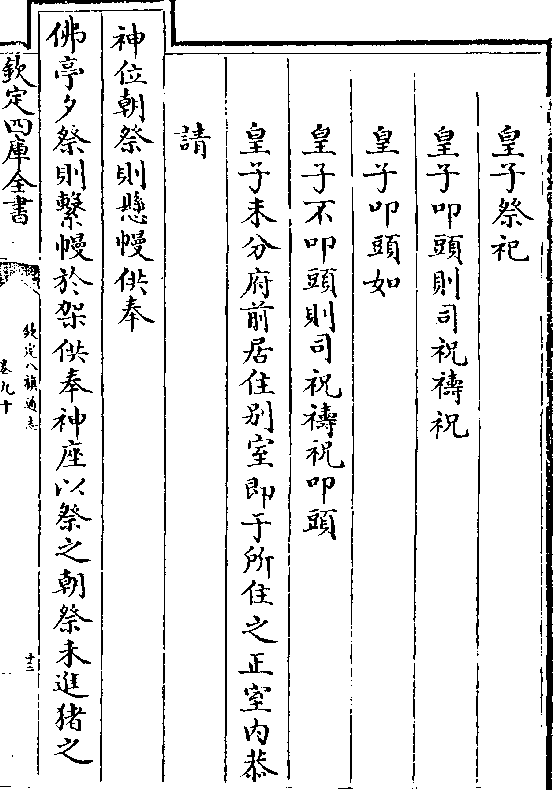 皇子祭祀
皇子叩頭則司祝禱祝
皇子叩頭如
皇子不叩頭則司祝禱祝叩頭
皇子未分府前居住别室即于所住之正室内恭
請
神位朝祭則懸幔供奉
佛亭夕祭則繫幔於架供奉神座以祭之朝祭未進猪之
欽定四庫全書
欽定八旗通志
卷九十
十三